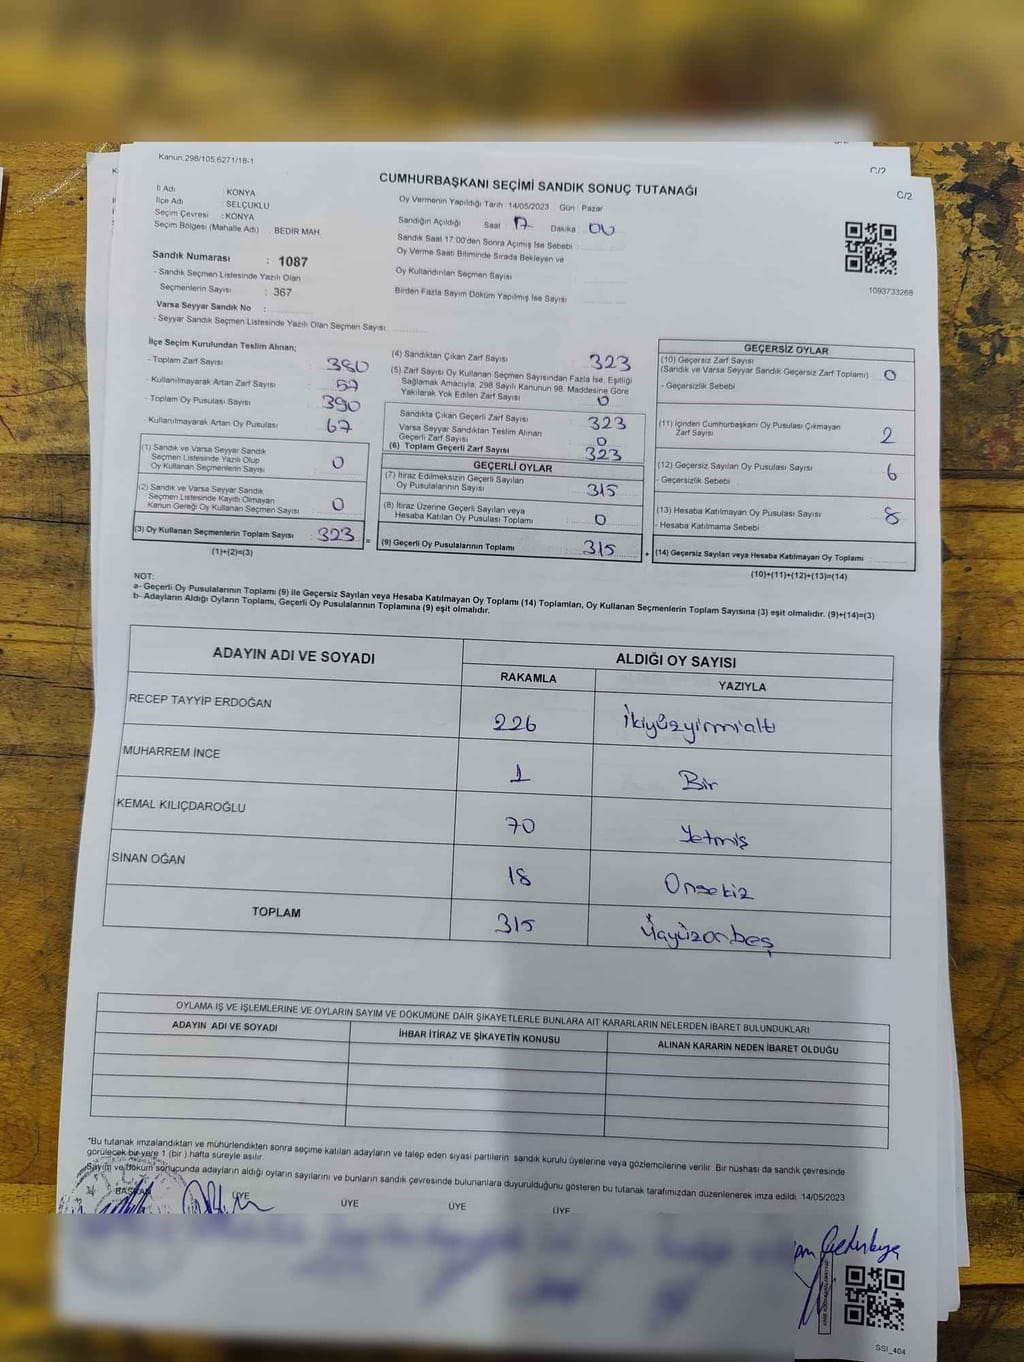 Kanun:298/105,6271/18-1
C/2
C/2
CUMHURBAŞKANI SEÇİMİ SANDIK SONUÇ TUTANAĞI
İl Adı : KONYA
İlçe Adı : SELÇUKLU
Seçim Çevresi : KONYA
Seçim Bölgesi (Mahalle Adı) : BEDİR MAH.
Oy Vermenin Yapıldığı Tarih :14/05/2023 Gün : Pazar
Sandığın Açıldığı Saat 17 Dakika 00
Sandık Saat 17:00'den Sonra Açılmış İse Sebebi
Oy Verme Saati Bitiminde Sırada Bekleyen ve
Oy Kullandırılan Seçmen Sayısı
Birden Fazla Sayım Döküm Yapılmış İse Sayısı
1093733268
Sandık Numarası : 1087
- Sandık Seçmen Listesinde Yazılı Olan
Seçmenlerin Sayısı : 367
Varsa Seyyar Sandık No :
- Seyyar Sandık Seçmen Listesinde Yazılı Olan Seçmen Sayısı:
İlçe Seçim Kurulundan Teslim Alınan;
- Toplam Zarf Sayısı 380
- Kullanılmayarak Artan Zarf Sayısı 57
- Toplam Oy Pusulası Sayısı 390
- Kullanılmayarak Artan Oy Pusulası 67
(1) Sandık ve Varsa Seyyar Sandık
Seçmen Listesinde Yazılı Olup
Oy Kullanan Seçmenlerin Sayısı 0
(2) Sandık ve Varsa Seyyar Sandık
Seçmen Listesinde Kayıtlı Olmayan
Kanun Gereği Oy Kullanan Seçmen Sayısı 0
(3) Oy Kullanan Seçmenlerin Toplam Sayısı 323
(1)+(2)=(3)
(4) Sandıktan Çıkan Zarf Sayısı 323
(5) Zarf Sayısı Oy Kullanan Seçmen Sayısından Fazla İse, Eşitliği
Sağlamak Amacıyla, 298 Sayılı Kanunun 98. Maddesine Göre
Yakılarak Yok Edilen Zarf Sayısı 0
Sandıkta Çıkan Geçerli Zarf Sayısı 323
Varsa Seyyar Sandıktan Teslim Alınan
Geçerli Zarf Sayısı 0
(6) Toplam Geçerli Zarf Sayısı 323
GEÇERLİ OYLAR
(7) İtiraz Edilmeksizin Geçerli Sayılan
Oy Pusulalarının Sayısı 315
(8) İtiraz Üzerine Geçerli Sayılan veya
Hesaba Katılan Oy Pusulası Toplamı 0
= (9) Geçerli Oy Pusulalarının Toplamı 315
GEÇERSİZ OYLAR
(10) Geçersiz Zarf Sayısı
(Sandık ve Varsa Seyyar Sandık Geçersiz Zarf Toplamı) 0
- Geçersizlik Sebebi
(11) İçinden Cumhurbaşkanı Oy Pusulası Çıkmayan
Zarf Sayısı 2
(12) Geçersiz Sayılan Oy Pusulası Sayısı 6
- Geçersizlik Sebebi
(13) Hesaba Katılmayan Oy Pusulası Sayısı 8
- Hesaba Katılmama Sebebi
+ (14) Geçersiz Sayılan veya Hesaba Katılmayan Oy Toplamı
(10)+(11)+(12)+(13)=(14)
NOT:
a- Geçerli Oy Pusulalarının Toplamı (9) ile Geçersiz Sayılan veya Hesaba Katılmayan Oy Toplamı (14) Toplamları, Oy Kullanan Seçmenlerin Toplam Sayısına (3) eşit olmalıdır. (9)+(14)=(3)
b- Adayların Aldığı Oyların Toplamı, Geçerli Oy Pusulalarının Toplamına (9) eşit olmalıdır.
ADAYIN ADI VE SOYADI
ALDIĞI OY SAYISI
RAKAMLA YAZIYLA
RECEP TAYYİP ERDOĞAN 226 İkiyüzyirmialtı
MUHARREM İNCE 1 Bir
KEMAL KILIÇDAROĞLU 70 Yetmiş
SİNAN OĞAN 18 Onsekiz
TOPLAM 315 Üçyüzonbeş
OYLAMA İŞ VE İŞLEMLERİNE VE OYLARIN SAYIM VE DÖKÜMÜNE DAİR ŞİKAYETLERLE BUNLARA AİT KARARLARIN NELERDEN İBARET BULUNDUKLARI
ADAYIN ADI VE SOYADI İHBAR İTİRAZ VE ŞİKAYETİN KONUSU ALINAN KARARIN NEDEN İBARET OLDUĞU
*Bu tutanak imzalandıktan ve mühürlendikten sonra seçime katılan adayların ve talep eden siyasi partilerin sandık kurulu üyelerine veya gözlemcilerine verilir. Bir nüshası da sandık çevresinde
görülecek bir yere 1 (bir ) hafta süreyle asılır.
Sayım ve döküm sonucunda adayların aldığı oyların sayılarını ve bunların sandık çevresinde bulunanlara duyurulduğunu gösteren bu tutanak tarafımızdan düzenlenerek imza edildi. 14/05/2023
BAŞKAN ÜYE ÜYE ÜYE ÜYE
SSI_404